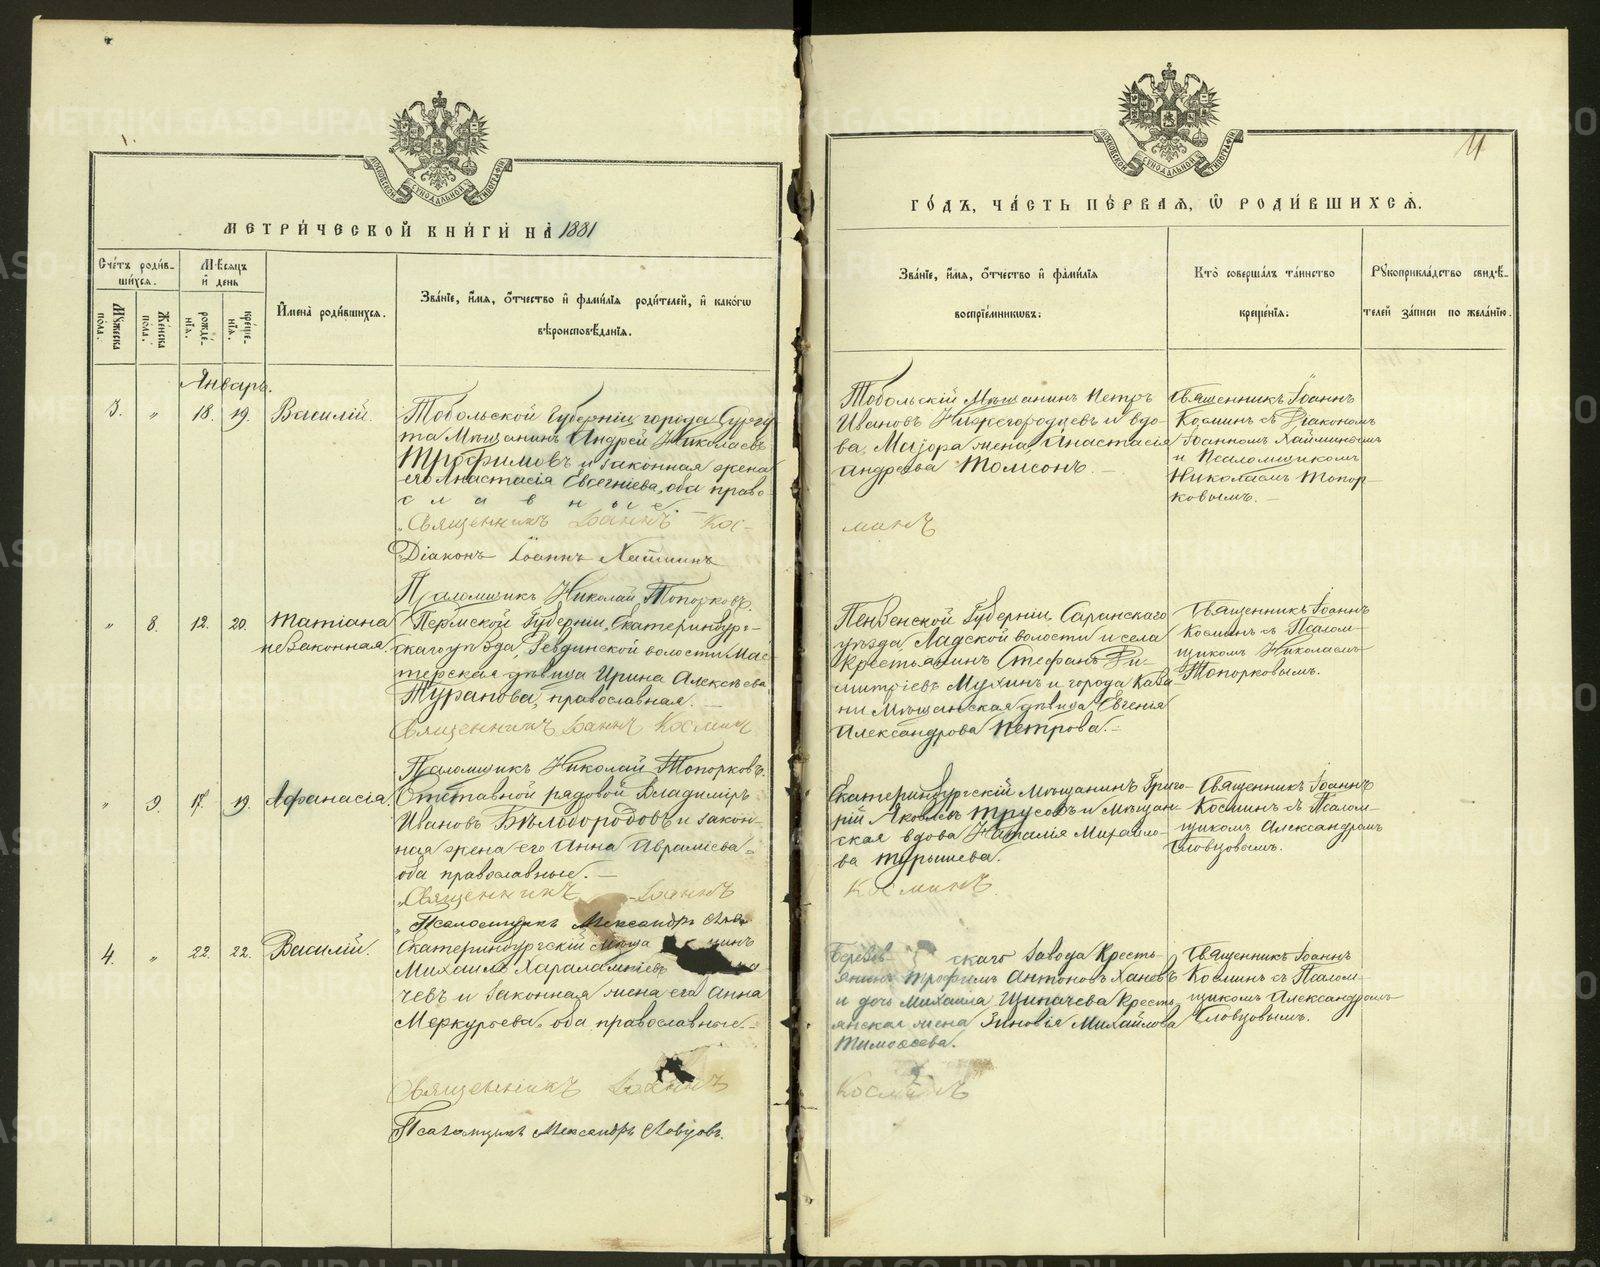 МЕТРИ́ЧЕСКОЙ КНИ́ГИ НА̀ 1881
Сче́тъ роди́в-
ши́хся.
Мѣсяцъ
и҆ день
Му́жеска
пола.
Же́нска
пола.
рожде́-
нїѧ.
креще́-
нїѧ.
И҆мена̀ роди́вшихсѧ.
Зва́нїе, и҆́мѧ, ѻ҆́тчество и҆ фами́лїѧ роди́телей, и҆ како́гѡ
вѣроисповѣ́данїѧ.
Январь.
3. " 18. 19. Василій.
Тобольской Губерніи города Сургу
та Мѣщанинъ Андрей Николаевъ
Трофимовъ и законная жена
его Анастасія Евсегніева, оба право-
славные.
Священникъ Іоаннъ Кос-
Діаконъ Іоаннъ Хайминъ
Псаломщикъ Николай Топорковъ.
" 8. 12. 20. Татіана
незаконная.
Пермской Губерніи, Екатеринбург-
скаго уѣзда, Ревдинской волости Мас-
терская дѣвица Ирина Алексѣева
Туранова, православная.
Священникъ Іоаннъ Косминъ
Псаломщикъ Николай Топорковъ.
" 9. 17. 19. Афанасія.
Отставной рядовой Владиміръ
Ивановъ Бѣлобородовъ и закон-
ная жена его Анна Аврамiева-
оба православные.
Священникъ Іоаннъ
Псаломщикъ Александръ Слов
4. " 22. 22. Василій.
Екатеринбургскій Мѣща нинъ
Михаилъ Харалампіевъ
чевъ и законная жена его Анна
Меркурьева, оба православные.
Священникъ Іоаннъ
Псаломщикъ Александръ Словцовъ.
11
ГО́ДЪ, ЧА́СТЬ ПЕ́РВАЯ, Ѽ РОДИ́ВШИХСЯ.
Зва́нїе, и҆́мѧ, ѻ҆́тчество и҆ фами́лїѧ
воспрїе́мникѡвъ.
Кто̀ соверша́лъ та́инство
креще́нїѧ.
Рꙋкоприкла́дство свидѣ́-
телей за́писи по жела́нїю.
Тобольскій Мѣщанинъ Петръ
Ивановъ Нижегородцевъ и вдо-
ва, Майора жена, Анастасія
Андреева Томсонъ.
минъ
Священникъ Іоаннъ
Косминъ съ Діакономъ
Іоанномъ Хайминымъ
и Псаломщикомъ
Николаемъ Топор-
ковымъ.
Пензенской Губерніи, Саранскаго
уѣзда, Ладской волости и села
Крестьянинъ Стефанъ Ди-
митріевъ Мухинъ и города Каза
ни Мѣщанская дѣвица Евгенія
Александрова Петрова.
Священникъ Іоаннъ
Косминъ съ Псалом-
щикомъ Николаемъ
Топорковымъ.
Екатеринбургскій Мѣщанинъ Григо-
рій Яковлевъ Трусовъ и Мѣщан-
ская вдова Наталія Михайло-
ва Турышева.
Косминъ.
Священникъ Іоаннъ
Косминъ съ Псалом-
щикомъ Александромъ
Словцовымъ.
Березов скаго Завода Кресть
янинъ Трофимъ Антоновъ Хановъ
и дочь Михаила Щипачева Кресть
янская жена Зиновія Михайлова
Тимоѳеева.
Косминъ
Священникъ Іоаннъ
Косминъ съ Псалом-
щикомъ Александромъ
Словцовымъ.
METRIKI.GASO-URAL.RU